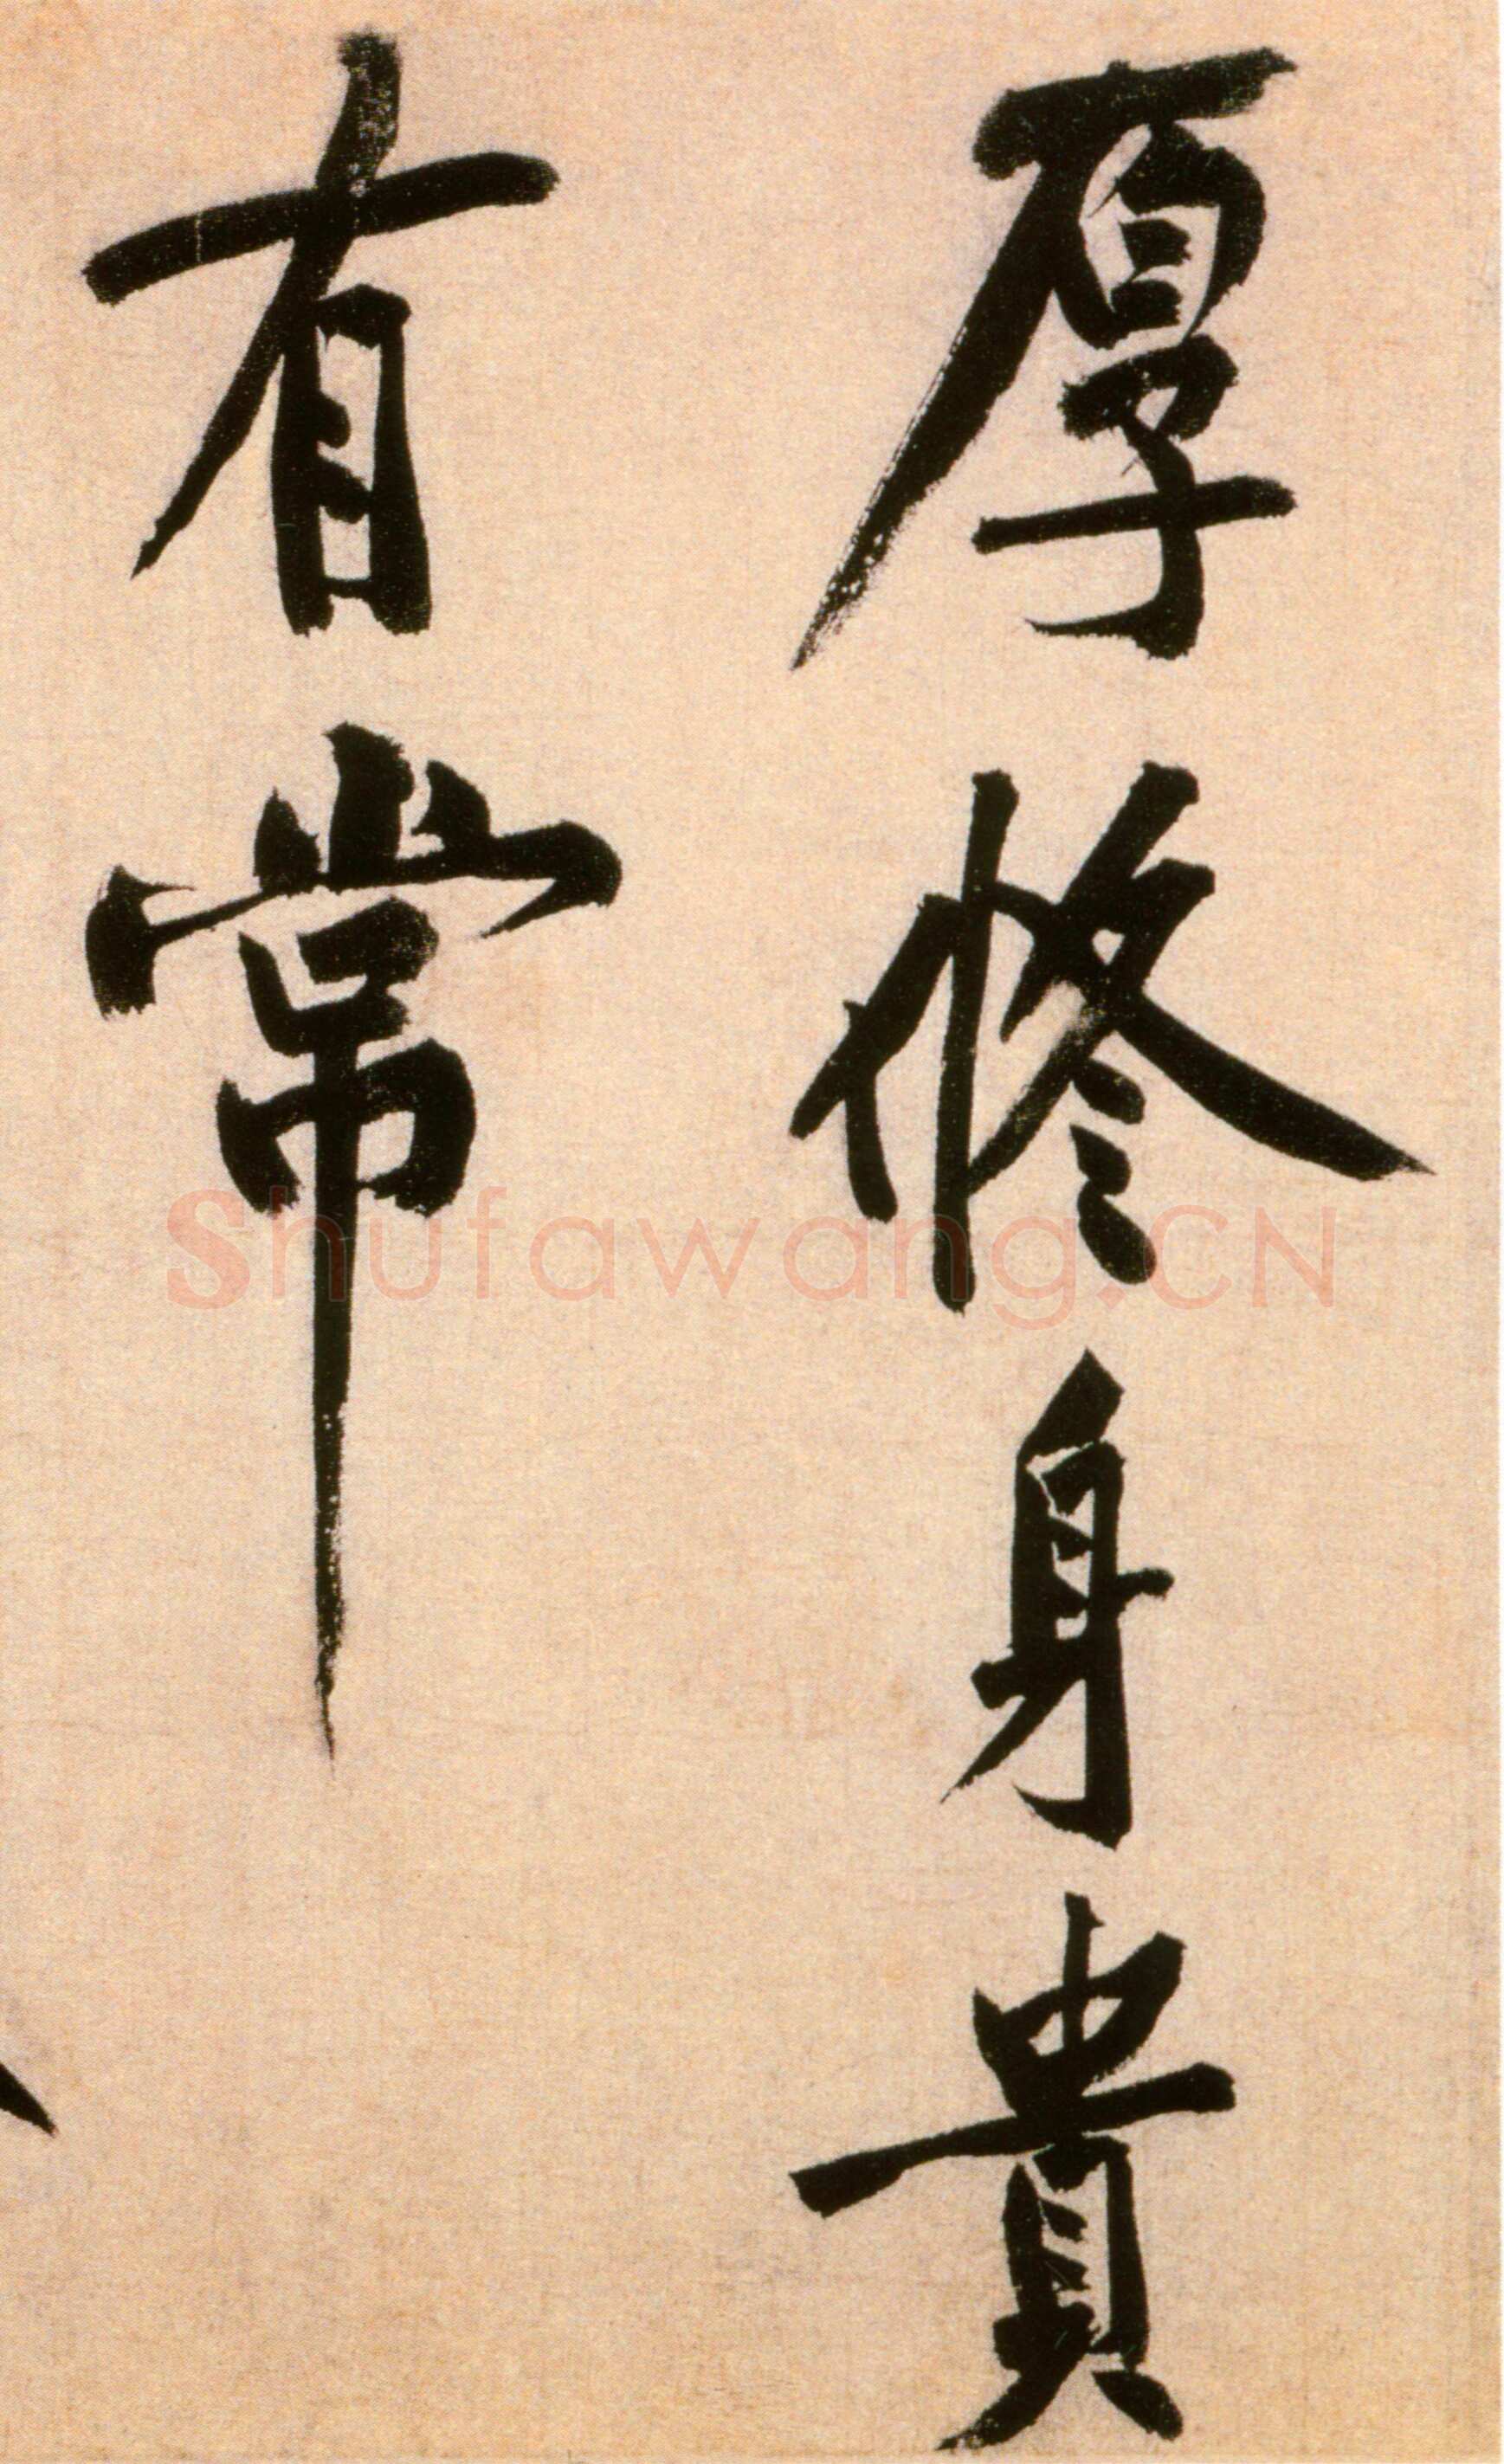 厚修身貴
有常
Shufawang.CN